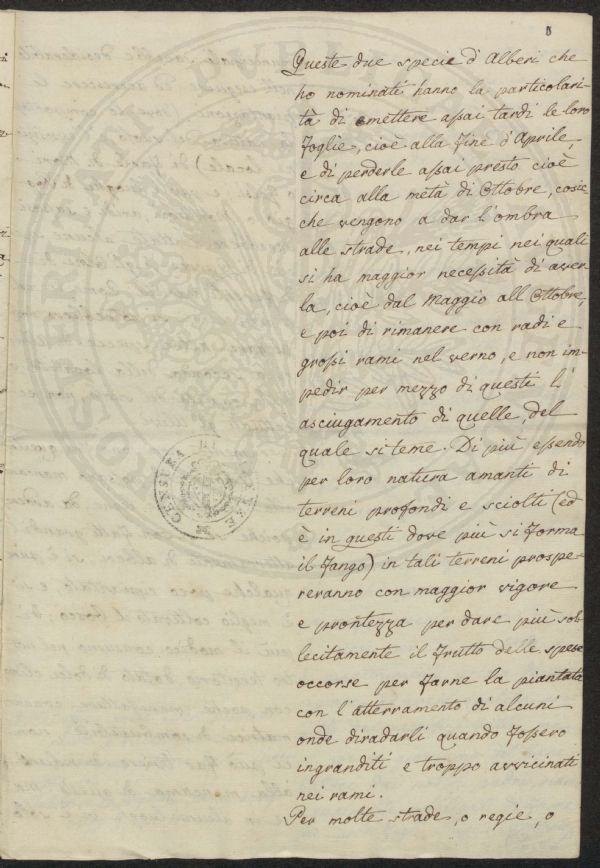 Queste due specie d'Alberi che
ho nominate hanno la particolari-
tà di emettere assai tardi le loro
foglie, cioè alla fine d'Aprile,
e di perderle assai presto cioè
circa alla metà di Ottobre, cosic
che vengono a dar l'ombra
alle strade, nei tempi nei quali
si ha maggior necessità di aver
la, cioè dal Maggio all Ottobre,
e poi di rimanere con radi e
grossi rami nel verno, e non im-
pedir per mezzo di questi l'
asciugamento di quelle, del
quale si teme. Di più essendo
per loro natura amanti di
terreni profondi e sciolti (ed
è in questi dove più si forma
il fango) in tali terreni prospe-
reranno con maggior vigore
e prontezza per dare più sol-
lecitamente il frutto delle spese
occorse per farne la piantata
con l'atterramento di alcuni
onde diradarli quando fossero
ingranditi e troppo avvicinati
nei rami.
Per molte strade, o regie, o
CENSURA